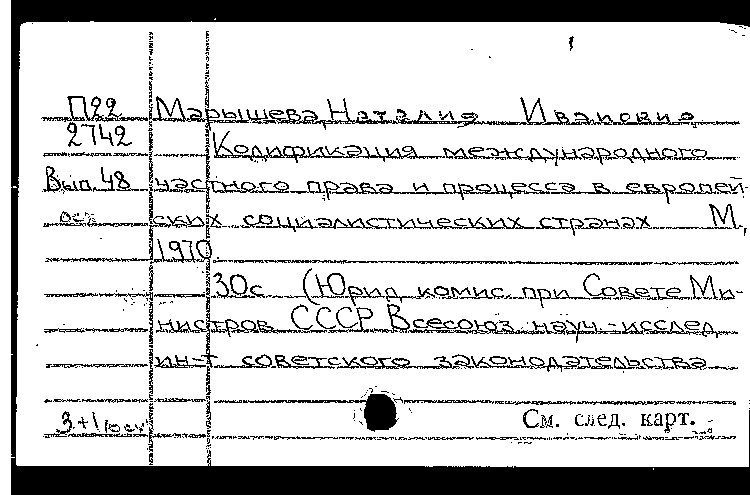 П22 Марышева, Наталия Ивановна
2742 Кодификация международного
Вып. 48 частного права и процесса в европей-
ских социалистических странах М.,
1970.
30с (Юрид. комис. при Совете Ми-
нистров СССР Всесоюз. науч.-исслед.
ин-т советского законодательства
3+1
См. след. карт.